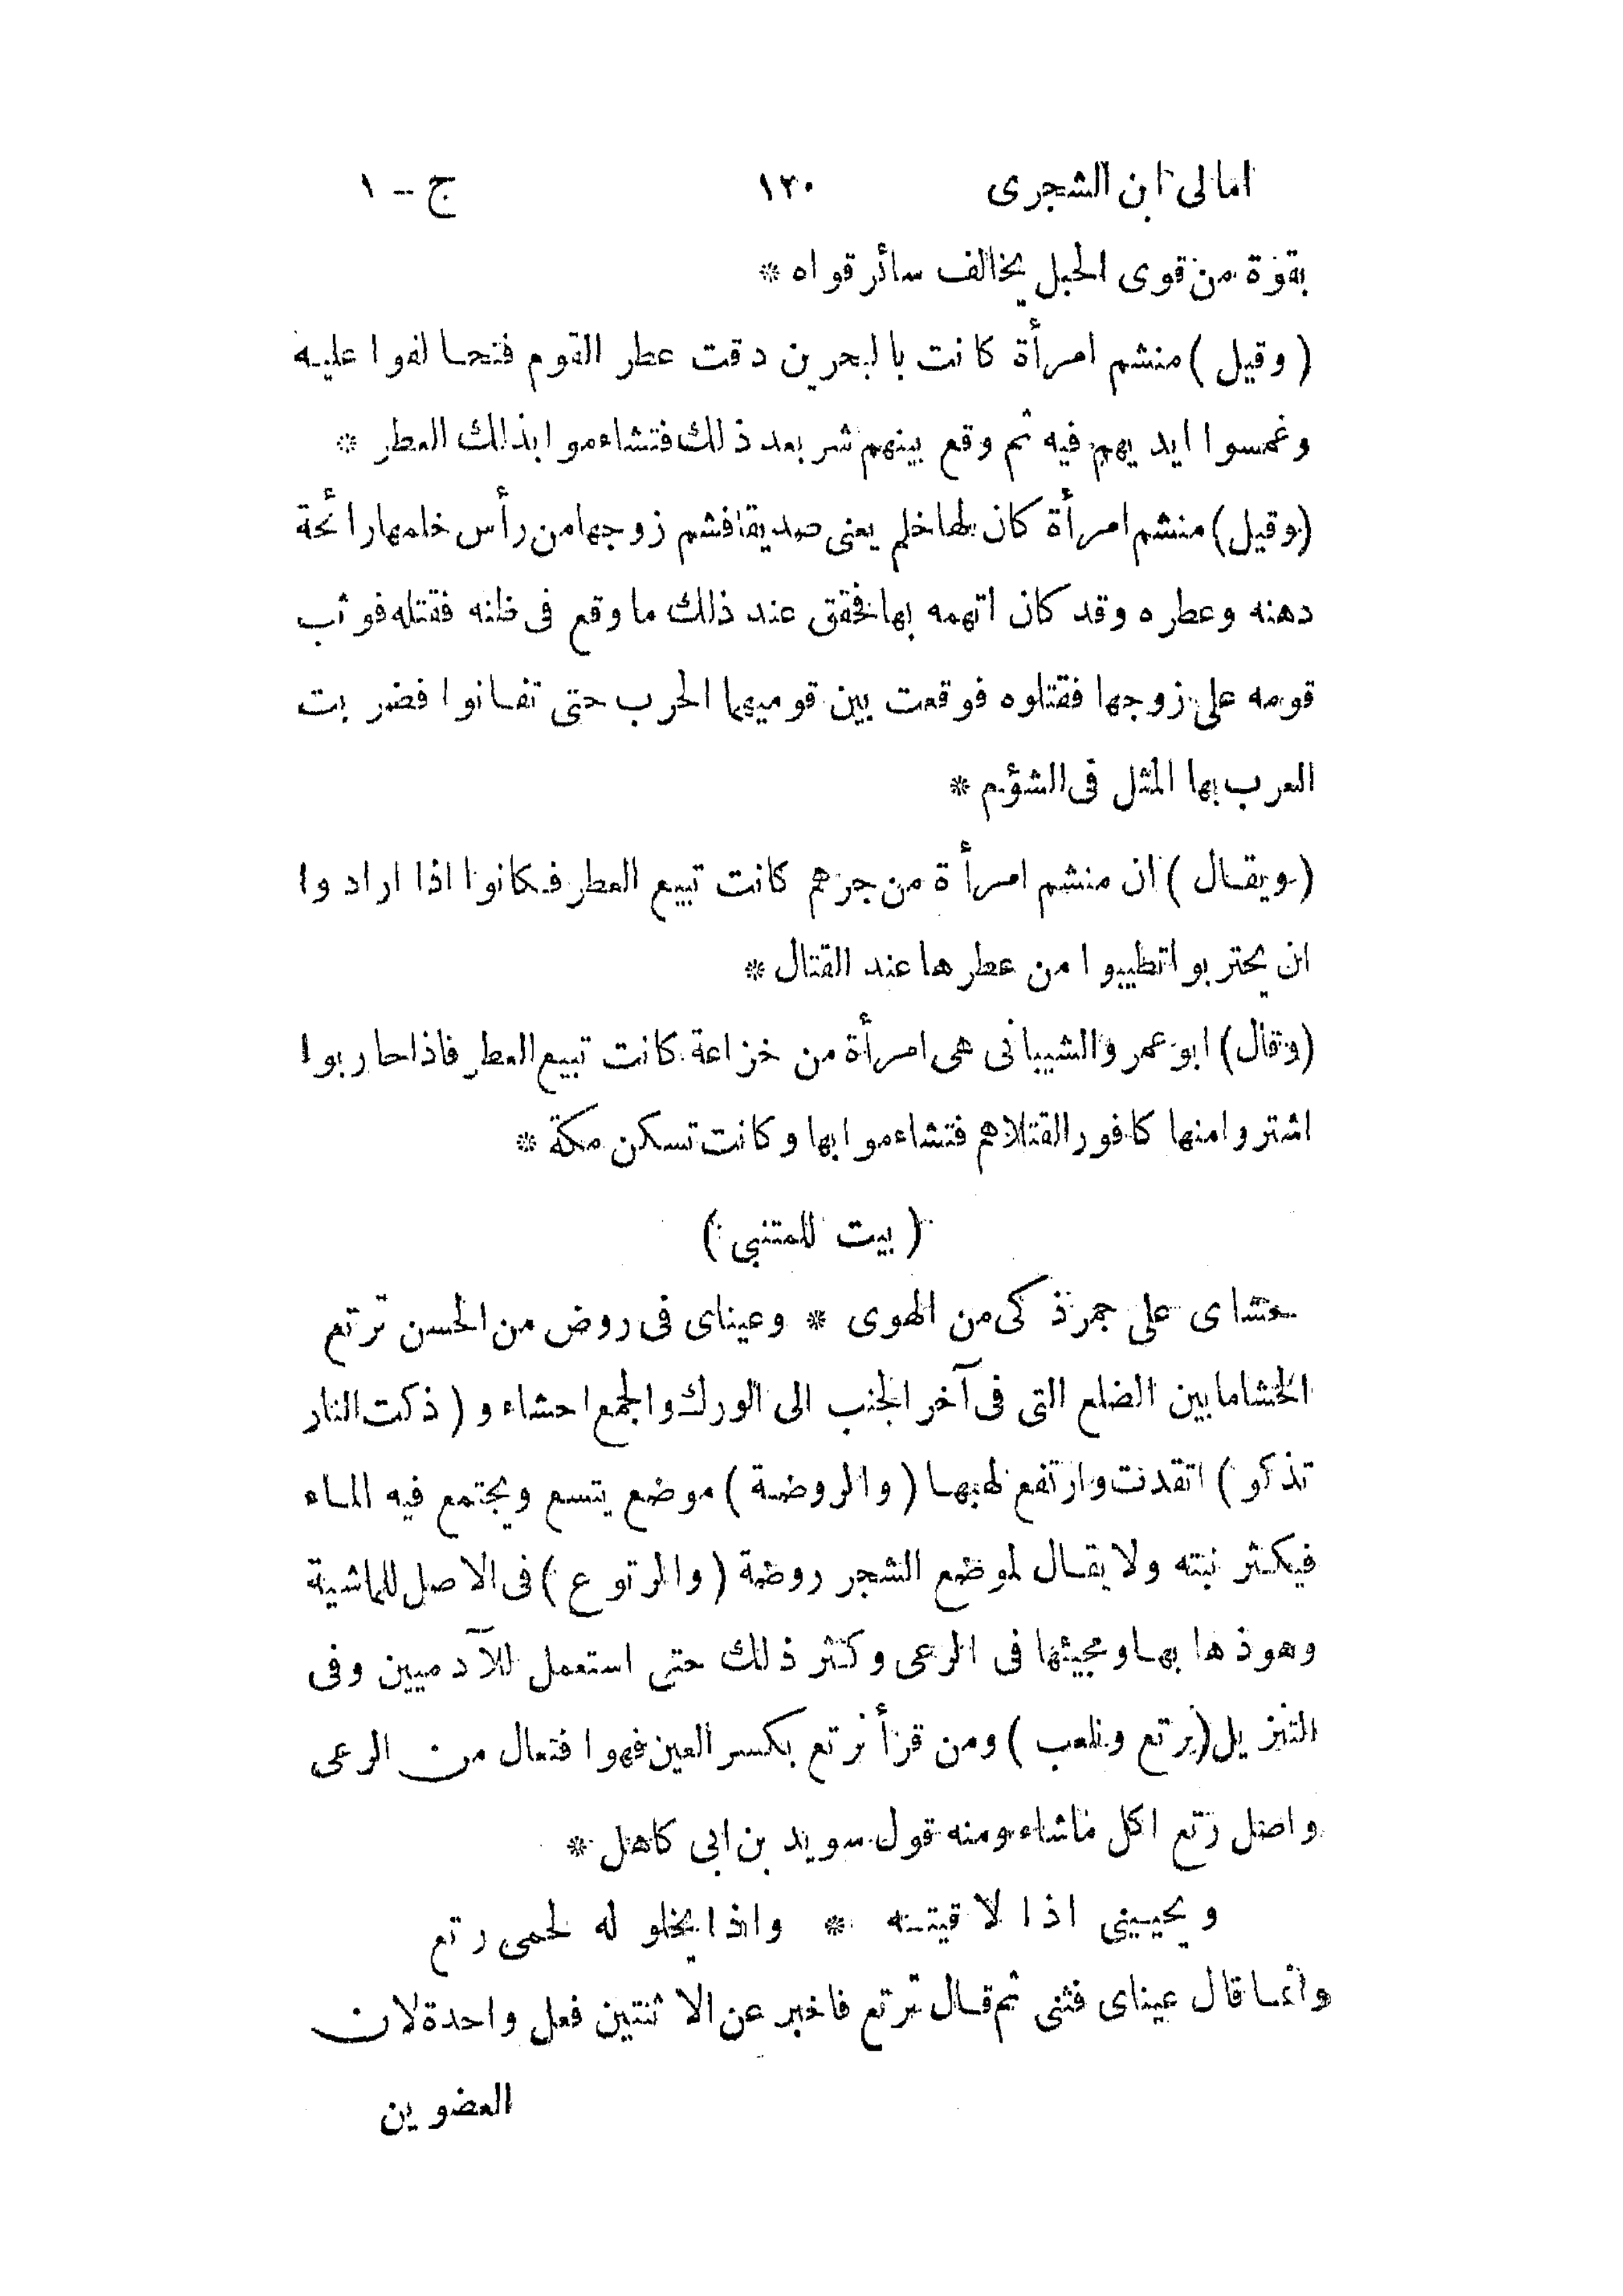 امالى ابن الشجرى ١٢٠ ج - ١
بقوة من قوى الحبل يخالف سائر قواه *
( وقيل ) منشم امرأة كانت بالبحرين دقت عطر القوم فتحالفوا عليه
وغمسوا ايديهم فيه ثم وقع بينهم شر بعد ذلك فتشاءموا بذلك العطر *
(وقيل) منشم امرأة كان لها خلم يعنى صديقا فشم زوجها من رأس خلمها رائحة
دهنه وعطره وقد كان اتهمه بها فحقق عند ذلك ما وقع فى ظنه فقتله فوثب
قومه على زوجها فقتلوه فوقعت بين قوميهما الحرب حتى تفانوا فضربت
العرب بها المثل فى الشؤم *
( ويقال ) ان منشم امرأة من جرهم كانت تبيع العطر فكانوا اذا ارادوا
ان يحتربوا تطيبوا من عطرها عند القتال *
(وقال) ابو عمرو الشيبانى هى امرأة من خزاعة كانت تبيع العطر فاذا حاربوا
اشتروا منها كافورا لقتلاهم فتشاءموا بها وكانت تسكن مكة *
( بيت للمتنبى )
حشاى على جمر ذكى من الهوى * وعيناى فى روض من الحسن ترتع
الحشا ما بين الضلع التى فى آخر الجنب الى الورك والجمع احشاء و ( ذكت النار
تذكو ) اتقدت وارتفع لهبها ( والروضة ) موضع يتسع ويجتمع فيه الماء
فيكثر نبته ولا يقال لموضع الشجر روضة ( والرتوع ) فى الاصل للماشية
وهو ذهابها ومجيئها فى الرعى وكثر ذلك حتى استعمل للآدميين وفى
التنزيل (نرتع ونلعب ) ومن قرأ نرتع بكسر العين فهو افتعال من الرعى
واصل رتع اكل ما شاء ومنه قول سويد بن ابى كاهل *
ويحيينى اذا لاقيته * واذا يخلو له لحمى رتع
وانما قال عيناى فثنى ثم قال ترتع فاخبر عن الاثنتين فعل واحدة لان
العضوين